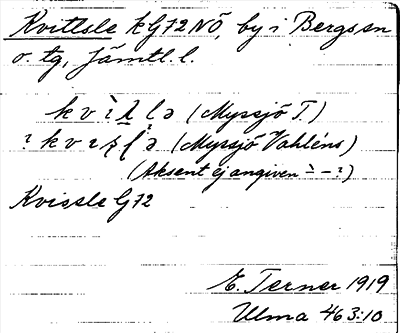 Kvittsle kG72NÖ, by i Bergs sn
o. tg, Jämtl. l.
(Myssjö T.)
(Myssjö Vahléns)
(Aksent ej angiven
Kvissle G72
E. Terner 1919
Ulma 463:10